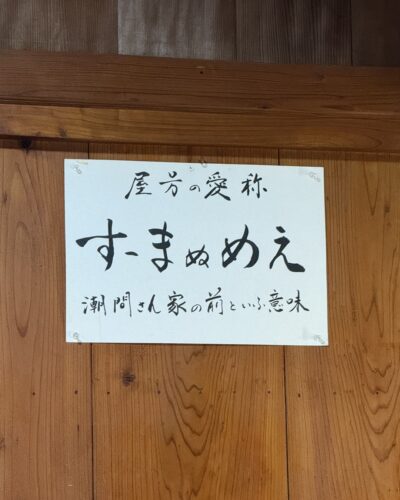 屋号の愛称
すーまぬめえ
潮間さん家の前といふ意味